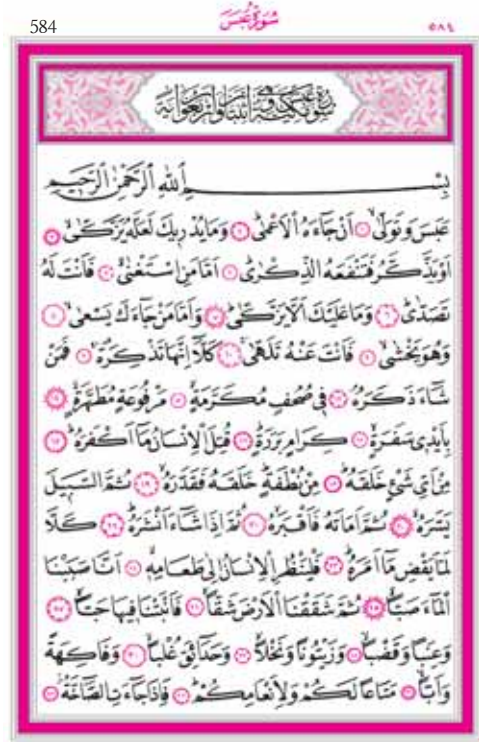 584 سُورَةُ عَبَسَ ٥٨٤
سُورَةُ عَبَسَ مَكِّيَّةٌ وَهِيَ اثْنَتَانِ وَاَرْبَعُونَ اٰيَةً
بِسْمِ اللّٰهِ الرَّحْمٰنِ الرَّحٖيمِ
عَبَسَ وَتَوَلّٰىۙ ١ اَنْ جَٓاءَهُ الْاَعْمٰىؕ ٢ وَمَا يُدْرٖيكَ لَعَلَّهُ يَزَّكّٰىۙ ٣
اَوْ يَذَّكَّرُ فَتَنْفَعَهُ الذِّكْرٰىؕ ٤ اَمَّا مَنِ اسْتَغْنٰىۙ ٥ فَاَنْتَ لَهُ
تَصَدّٰىؕ ٦ وَمَا عَلَيْكَ اَلَّا يَزَّكّٰىؕ ٧ وَاَمَّا مَنْ جَٓاءَكَ يَسْعٰىۙ ٨
وَهُوَ يَخْشٰىۙ ٩ فَاَنْتَ عَنْهُ تَلَهّٰىۚ ١٠ كَلَّٓا اِنَّهَا تَذْكِرَةٌۚ ١١ فَمَنْ
شَٓاءَ ذَكَرَهُۢ ١٢ فٖى صُحُفٍ مُكَرَّمَةٍۙ ١٣ مَرْفُوعَةٍ مُطَهَّرَةٍۙ ١٤
بِاَيْدٖى سَفَرَةٍۙ ١٥ كِرَامٍ بَرَرَةٍؕ ١٦ قُتِلَ الْاِنْسَانُ مَٓا اَكْفَرَهُؕ ١٧
مِنْ اَىِّ شَىْءٍ خَلَقَهُؕ ١٨ مِنْ نُطْفَةٍؕ خَلَقَهُ فَقَدَّرَهُۙ ١٩ ثُمَّ السَّبٖيلَ
يَسَّرَهُۙ ٢٠ ثُمَّ اَمَاتَهُ فَاَقْبَرَهُۙ ٢١ ثُمَّ اِذَا شَٓاءَ اَنْشَرَهُؕ ٢٢ كَلَّا
لَمَّا يَقْضِ مَٓا اَمَرَهُؕ ٢٣ فَلْيَنْظُرِ الْاِنْسَانُ اِلٰى طَعَامِهٖۙ ٢٤ اَنَّا صَبَبْنَا
الْمَٓاءَ صَبًّاۙ ٢٥ ثُمَّ شَقَقْنَا الْاَرْضَ شَقًّاۙ ٢٦ فَاَنْبَتْنَا فٖيهَا حَبًّاۙ ٢٧
وَعِنَبًا وَقَضْبًاۙ ٢٨ وَزَيْتُونًا وَنَخْلًاۙ ٢٩ وَحَدَٓائِقَ غُلْبًاۙ ٣٠ وَفَاكِهَةً
وَاَبًّاۙ ٣١ مَتَاعًا لَكُمْ وَلِاَنْعَامِكُمْؕ ٣٢ فَاِذَا جَٓاءَتِ الصَّٓاخَّةُؗ ٣٣